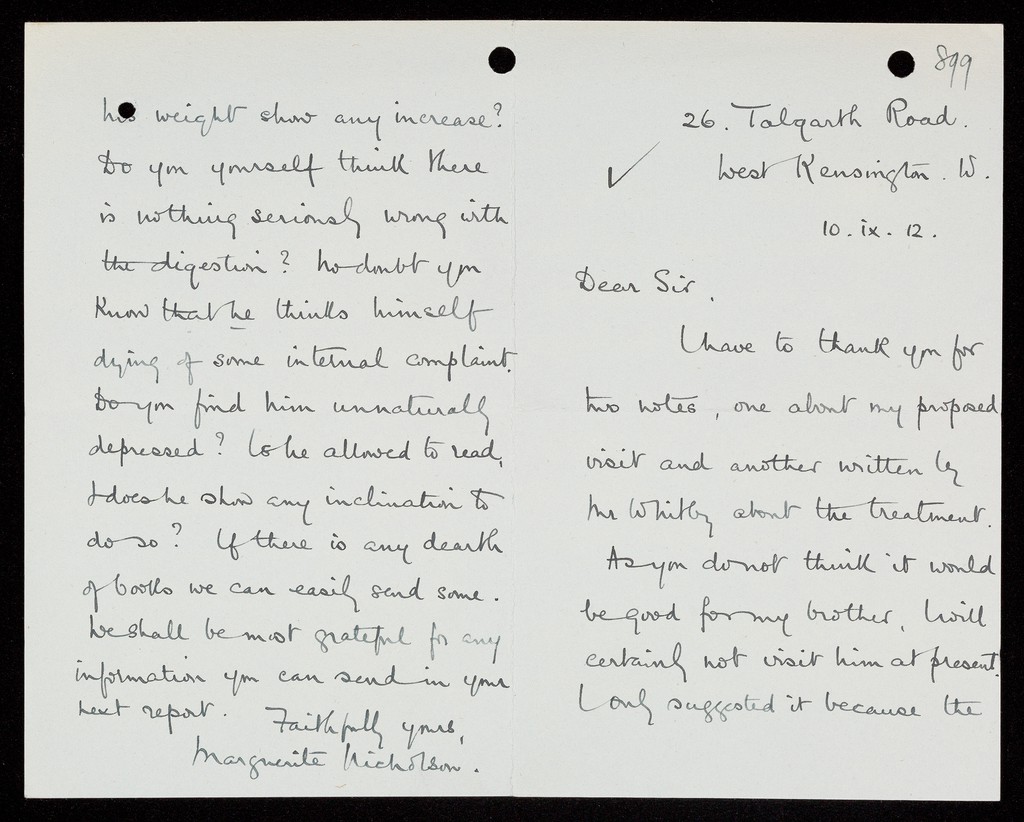 899
26. Talgarth Road.
West Kensington. W.
10. ix. 12.
Dear Sir,
I have to thank you for
two notes, one about my proposed
visit and another written by
Mr Whitby about the treatment.
As you do not think it would
be good for my brother, I will
certainly not visit him at present.
I only suggested it because the
his weight show any increase?
Do you yourself think there
is nothing seriously wrong with
the digestion? No doubt you
know that he thinks himself
dying of some internal complaint.
Do you find him unnaturally
depressed? Is he allowed to read,
& does he show any inclination to
do so? If there is any dearth
of books we can easily send some.
We shall be most grateful for any
information you can send in your
next report. Faithfully yours,
Marguerite Nicholson.